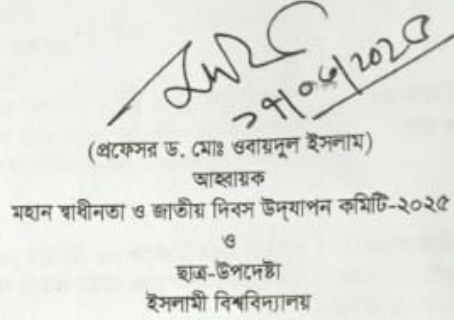 (প্রফেসর ড. মোঃ ওবায়দুল ইসলাম)
আহ্বায়ক
মহান স্বাধীনতা ও জাতীয় দিবস উদ্‌যাপন কমিটি-২০২৫
ও
ছাত্র-উপদেষ্টা
ইসলামী বিশ্ববিদ্যালয়